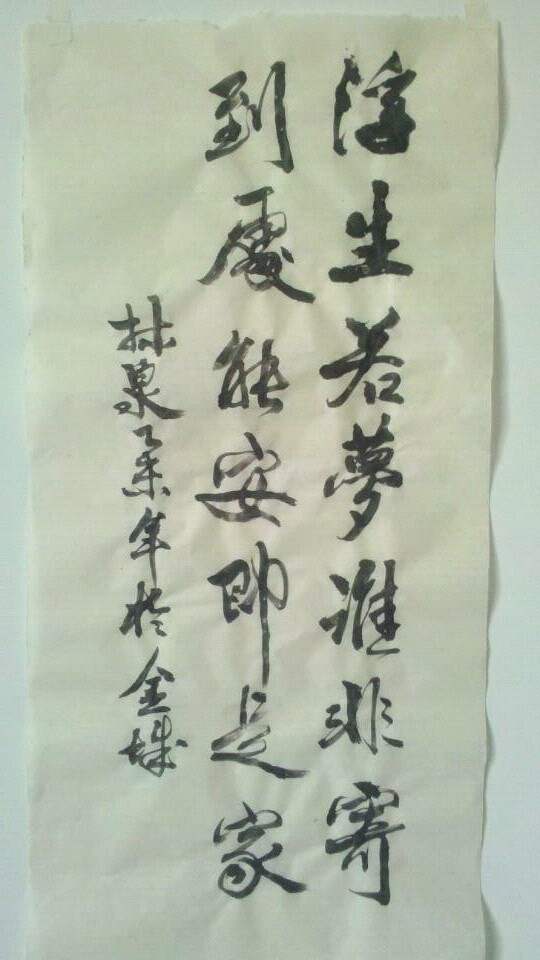 浮生若夢誰非寄
到處能安即是家
林泉乙未年於金城